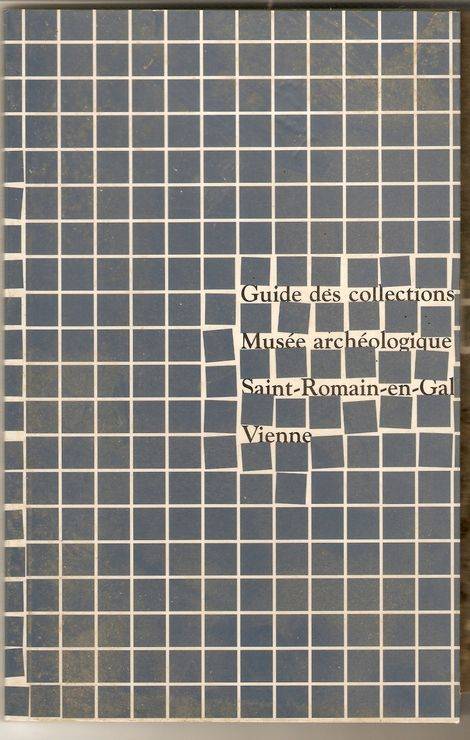 Guide des collections
Musée archéologique
Saint-Romain-en-Gal
Vienne